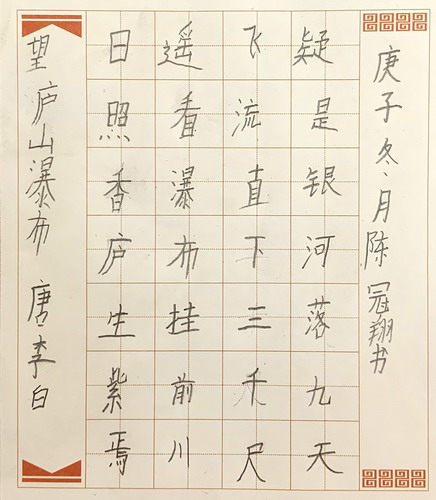 望庐山瀑布 唐·李白
日照香庐生紫焉
遥看瀑布挂前川
飞流直下三千尺
疑是银河落九天
庚子冬·月陈冠翔书